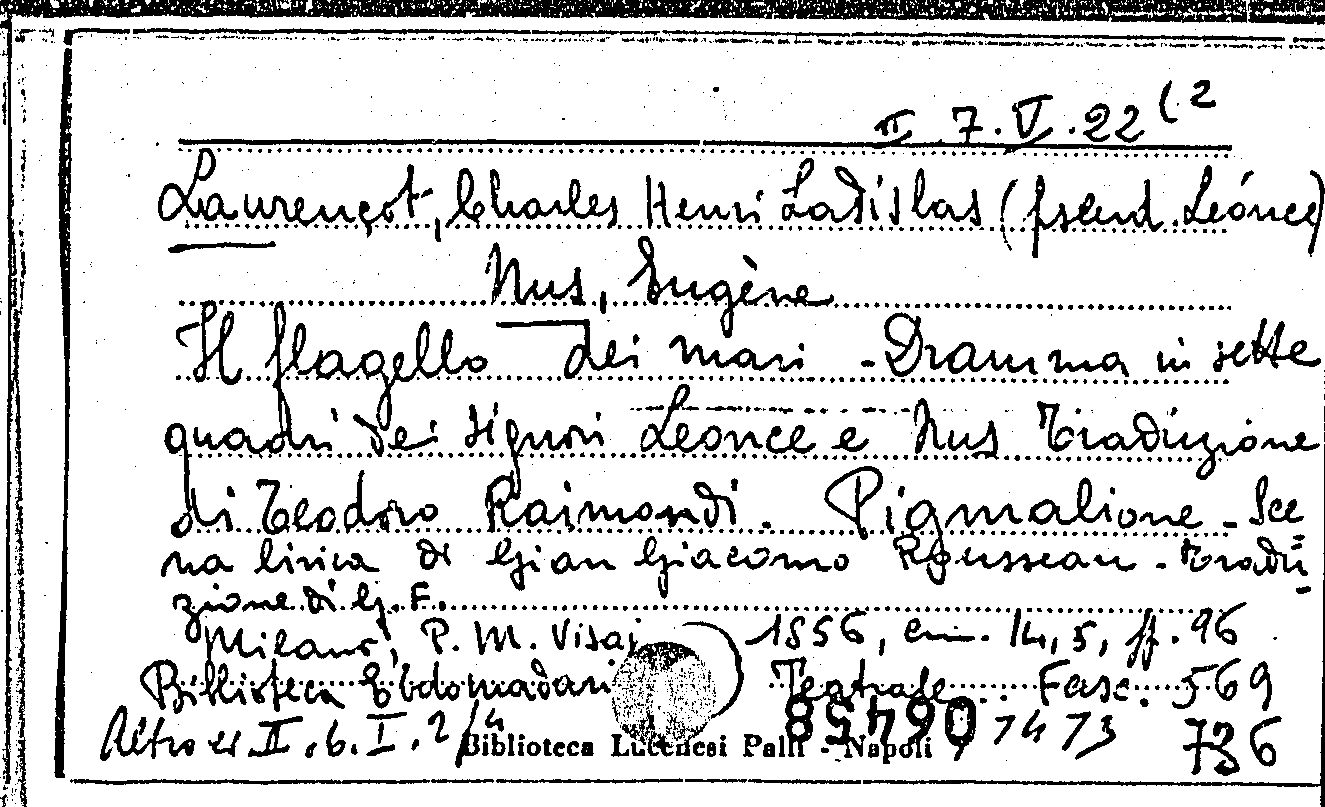 II 7.V.22 (2
Laurençot, Charles Henri Ladislas (pseud. Léonce)
Nus, Eugène
Il flagello dei mari - Dramma in sette
quadri dei signori Leonce e Nus Traduzione
di Teodoro Raimondi. Pigmalione - Sce=
na lirica di Gian Giacomo Rousseau - Tradu=
zione di G. F.
Milano, P. M. Visaj 1856, cm. 14,5, pp. 96
Biblioteca Ebdomadaria Teatrale. Fasc. 569
Altro es. II.b.I.2/4 736
Biblioteca Lucchesi Palli - Napoli